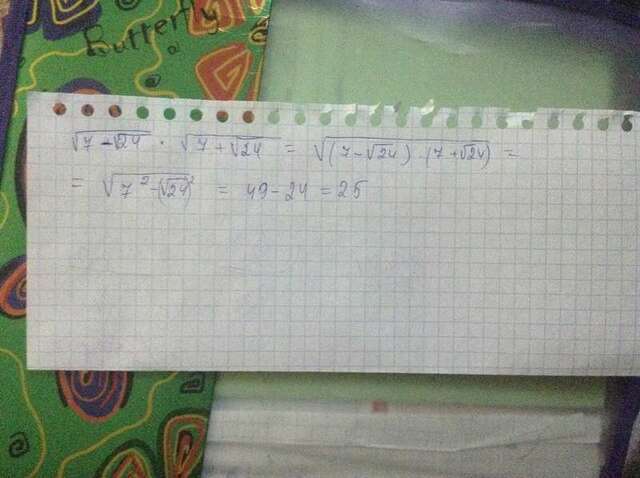 Butterfly
√(7 - √24) · √(7 + √24) = √((7 - √24) · (7 + √24)) =
= √(7² - (√24)²) = 49 - 24 = 25